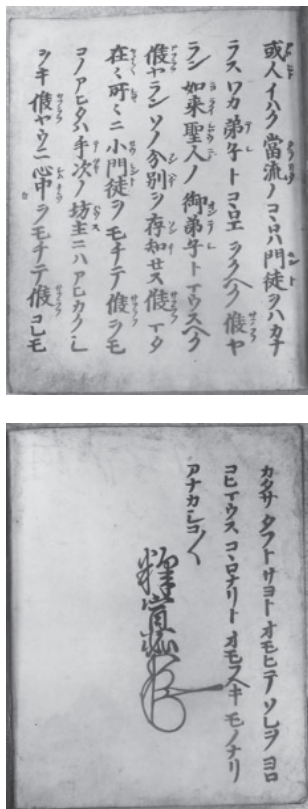 或人イハク當流ノコヽロハ門徒ヲハカナ
ラスワカ弟子トコヽロエヲクヘク候ヤ
ラン如来聖人ノ御弟子トマウスヘク
候ヤランソノ分別ヲ存知セス候マタ
在々所々ニ小門徒ヲモチテ候ヲモ
コノアヒタハ手次ノ坊主ニハアヒカクシ
ヲキ候ヤウニ心中ヲモチテ候コレモ
カタサタフトサヨトオモヒテソレヲヨロ
コヒマウスコヽロナリトオモフヘキモノナリ
アナカシコ〱
釋實如